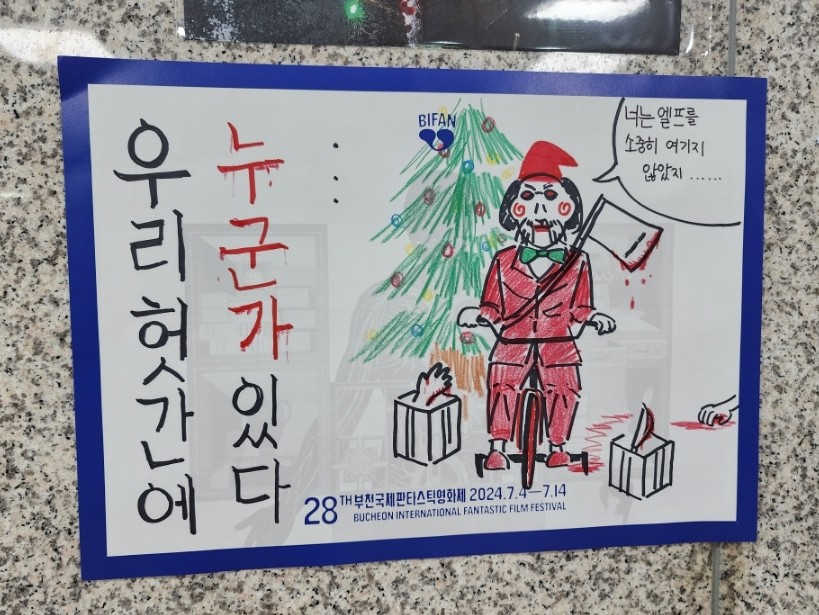 우리 헛간에
누군가 있다
...
BIFAN
너는 엘프를
소중히 여기지
않았지 ......
28TH 부천국제판타스틱영화제 2024.7.4—7.14
BUCHEON INTERNATIONAL FANTASTIC FILM FESTIVAL